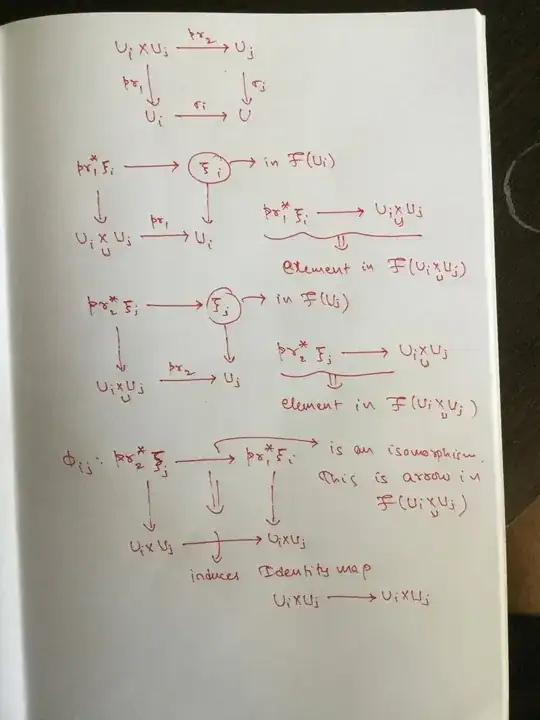 U_i × U_j —pr_2→ U_j
pr_1 ↓ ↓ σ_j
U_i —σ_i→ U
pr_1^* ξ_i → ξ_i → in F(U_i)
↓ ↓
U_i ×_U U_j —pr_1→ U_i
pr_1^* ξ_i → U_i ×_U U_j
⇓
element in F(U_i ×_U U_j)
pr_2^* ξ_j → ξ_j → in F(U_j)
↓ ↓
U_i ×_U U_j —pr_2→ U_j
pr_2^* ξ_j → U_i ×_U U_j
⇓
element in F(U_i ×_U U_j)
ϕ_ij : pr_2^* ξ_j → pr_1^* ξ_i → is an isomorphism.
This is arrow in
F(U_i ×_U U_j)
↓ ⇓ ↓
U_i × U_j → U_i × U_j
induces Identity map
U_i × U_j → U_i × U_j